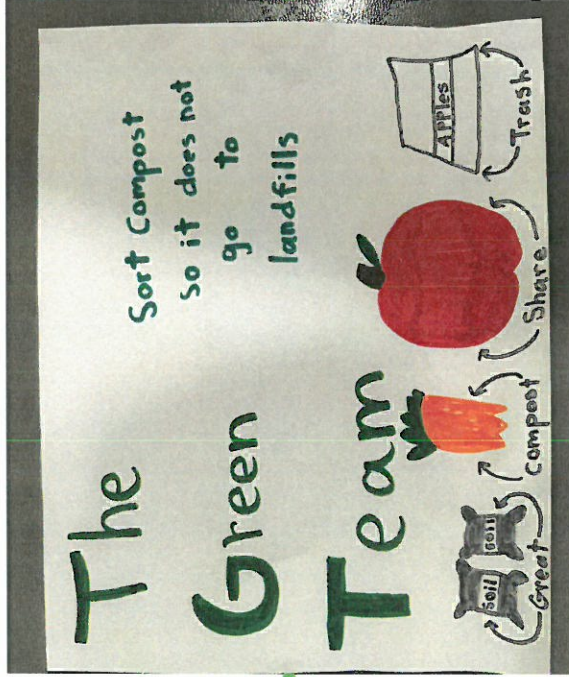 The
Green
Team
Sort Compost
So it does not
go to
landfills
APPles
Soil
Soil
Great
compost
Share
Trash